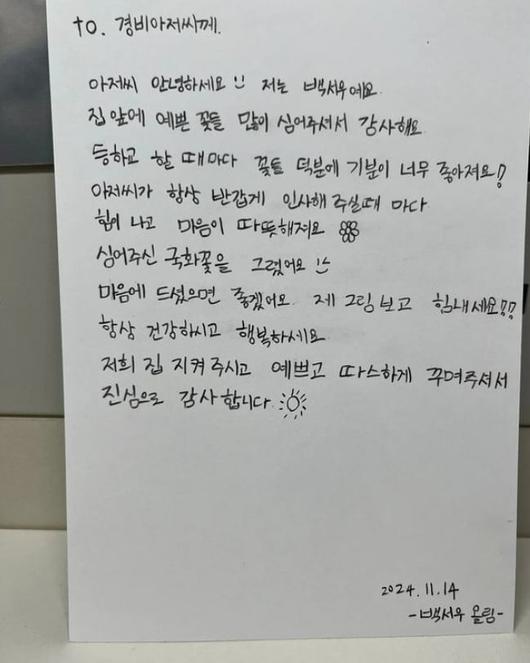 to. 경비아저씨께.
아저씨 안녕하세요 저는 백서우예요.
집 앞에 예쁜 꽃들 많이 심어주셔서 감사해요.
등하교 할 때마다 꽃들 덕분에 기분이 너무 좋아져요!
아저씨가 항상 반갑게 인사해 주실때 마다
힘이 나고 마음이 따뜻해져요
심어주신 국화꽃을 그렸어요
마음에 드셨으면 좋겠어요. 제 그림 보고 힘내세요!!
항상 건강하시고 행복하세요.
저희 집 지켜 주시고 예쁘고 따스하게 꾸며주셔서
진심으로 감사합니다.
2024.11.14
-백서우 올림-